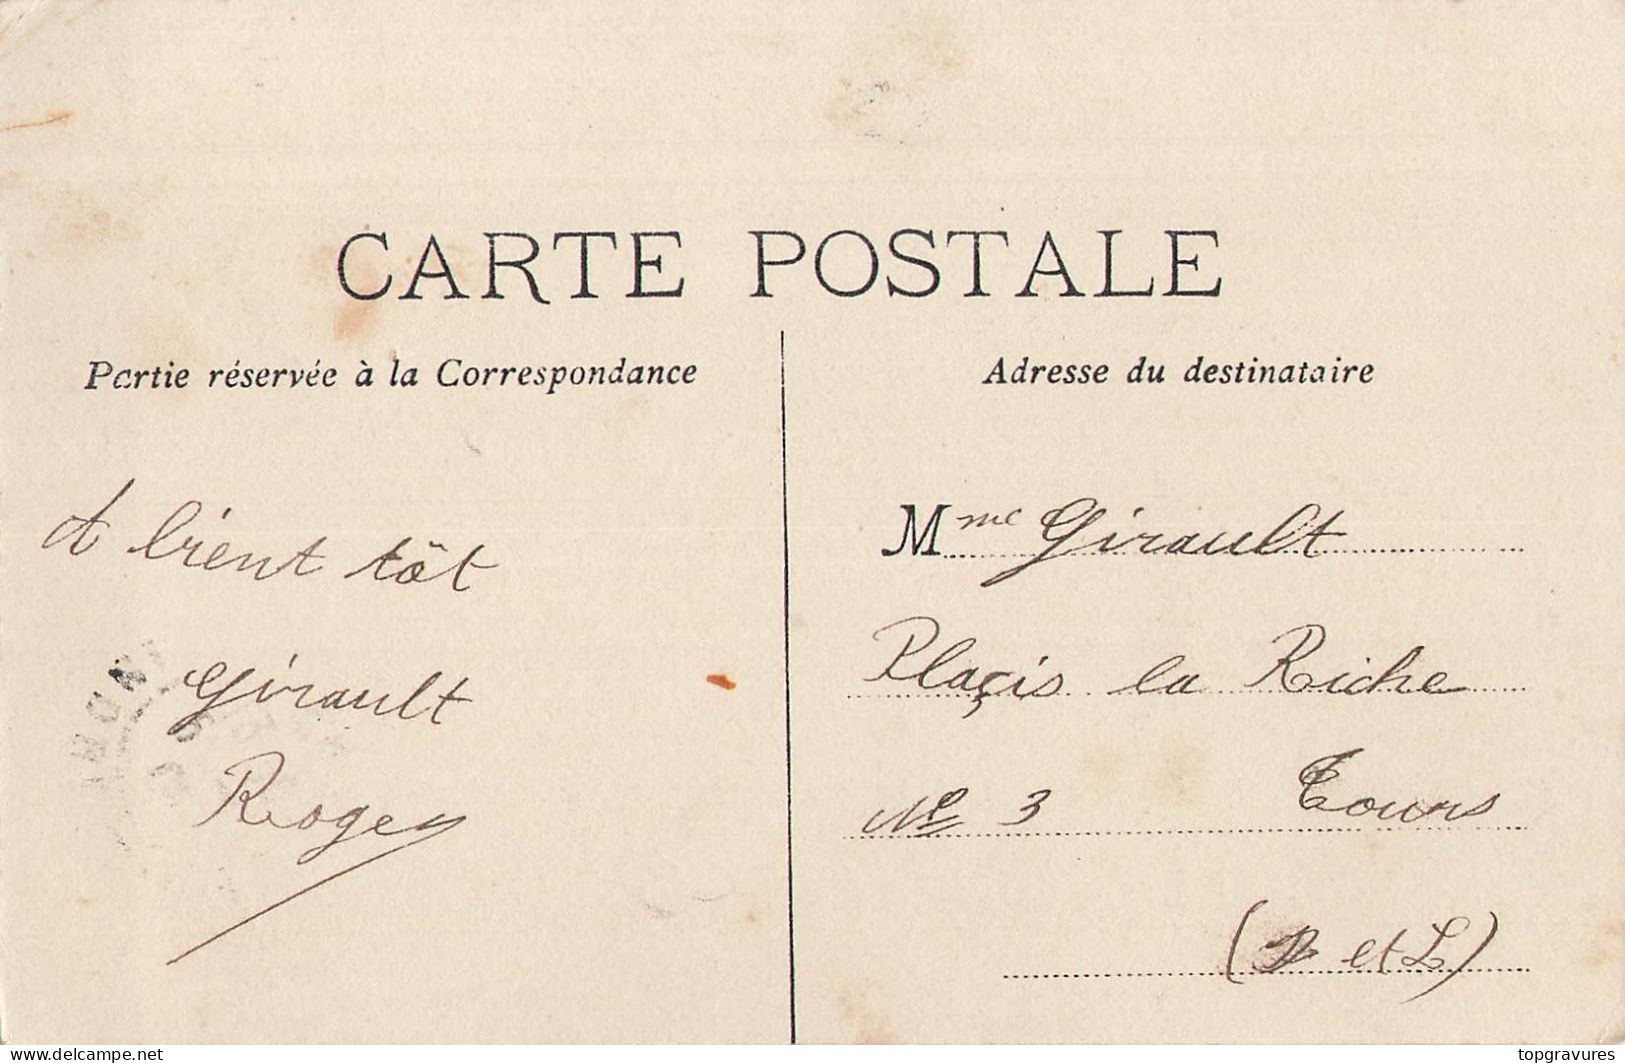 CARTE POSTALE
Partie réservée à la Correspondance
A bient tôt
Girault
Roger
Adresse du destinataire
Mme Girault
Plaçis la Riche
No 3 Tours
( et L)
topgravures